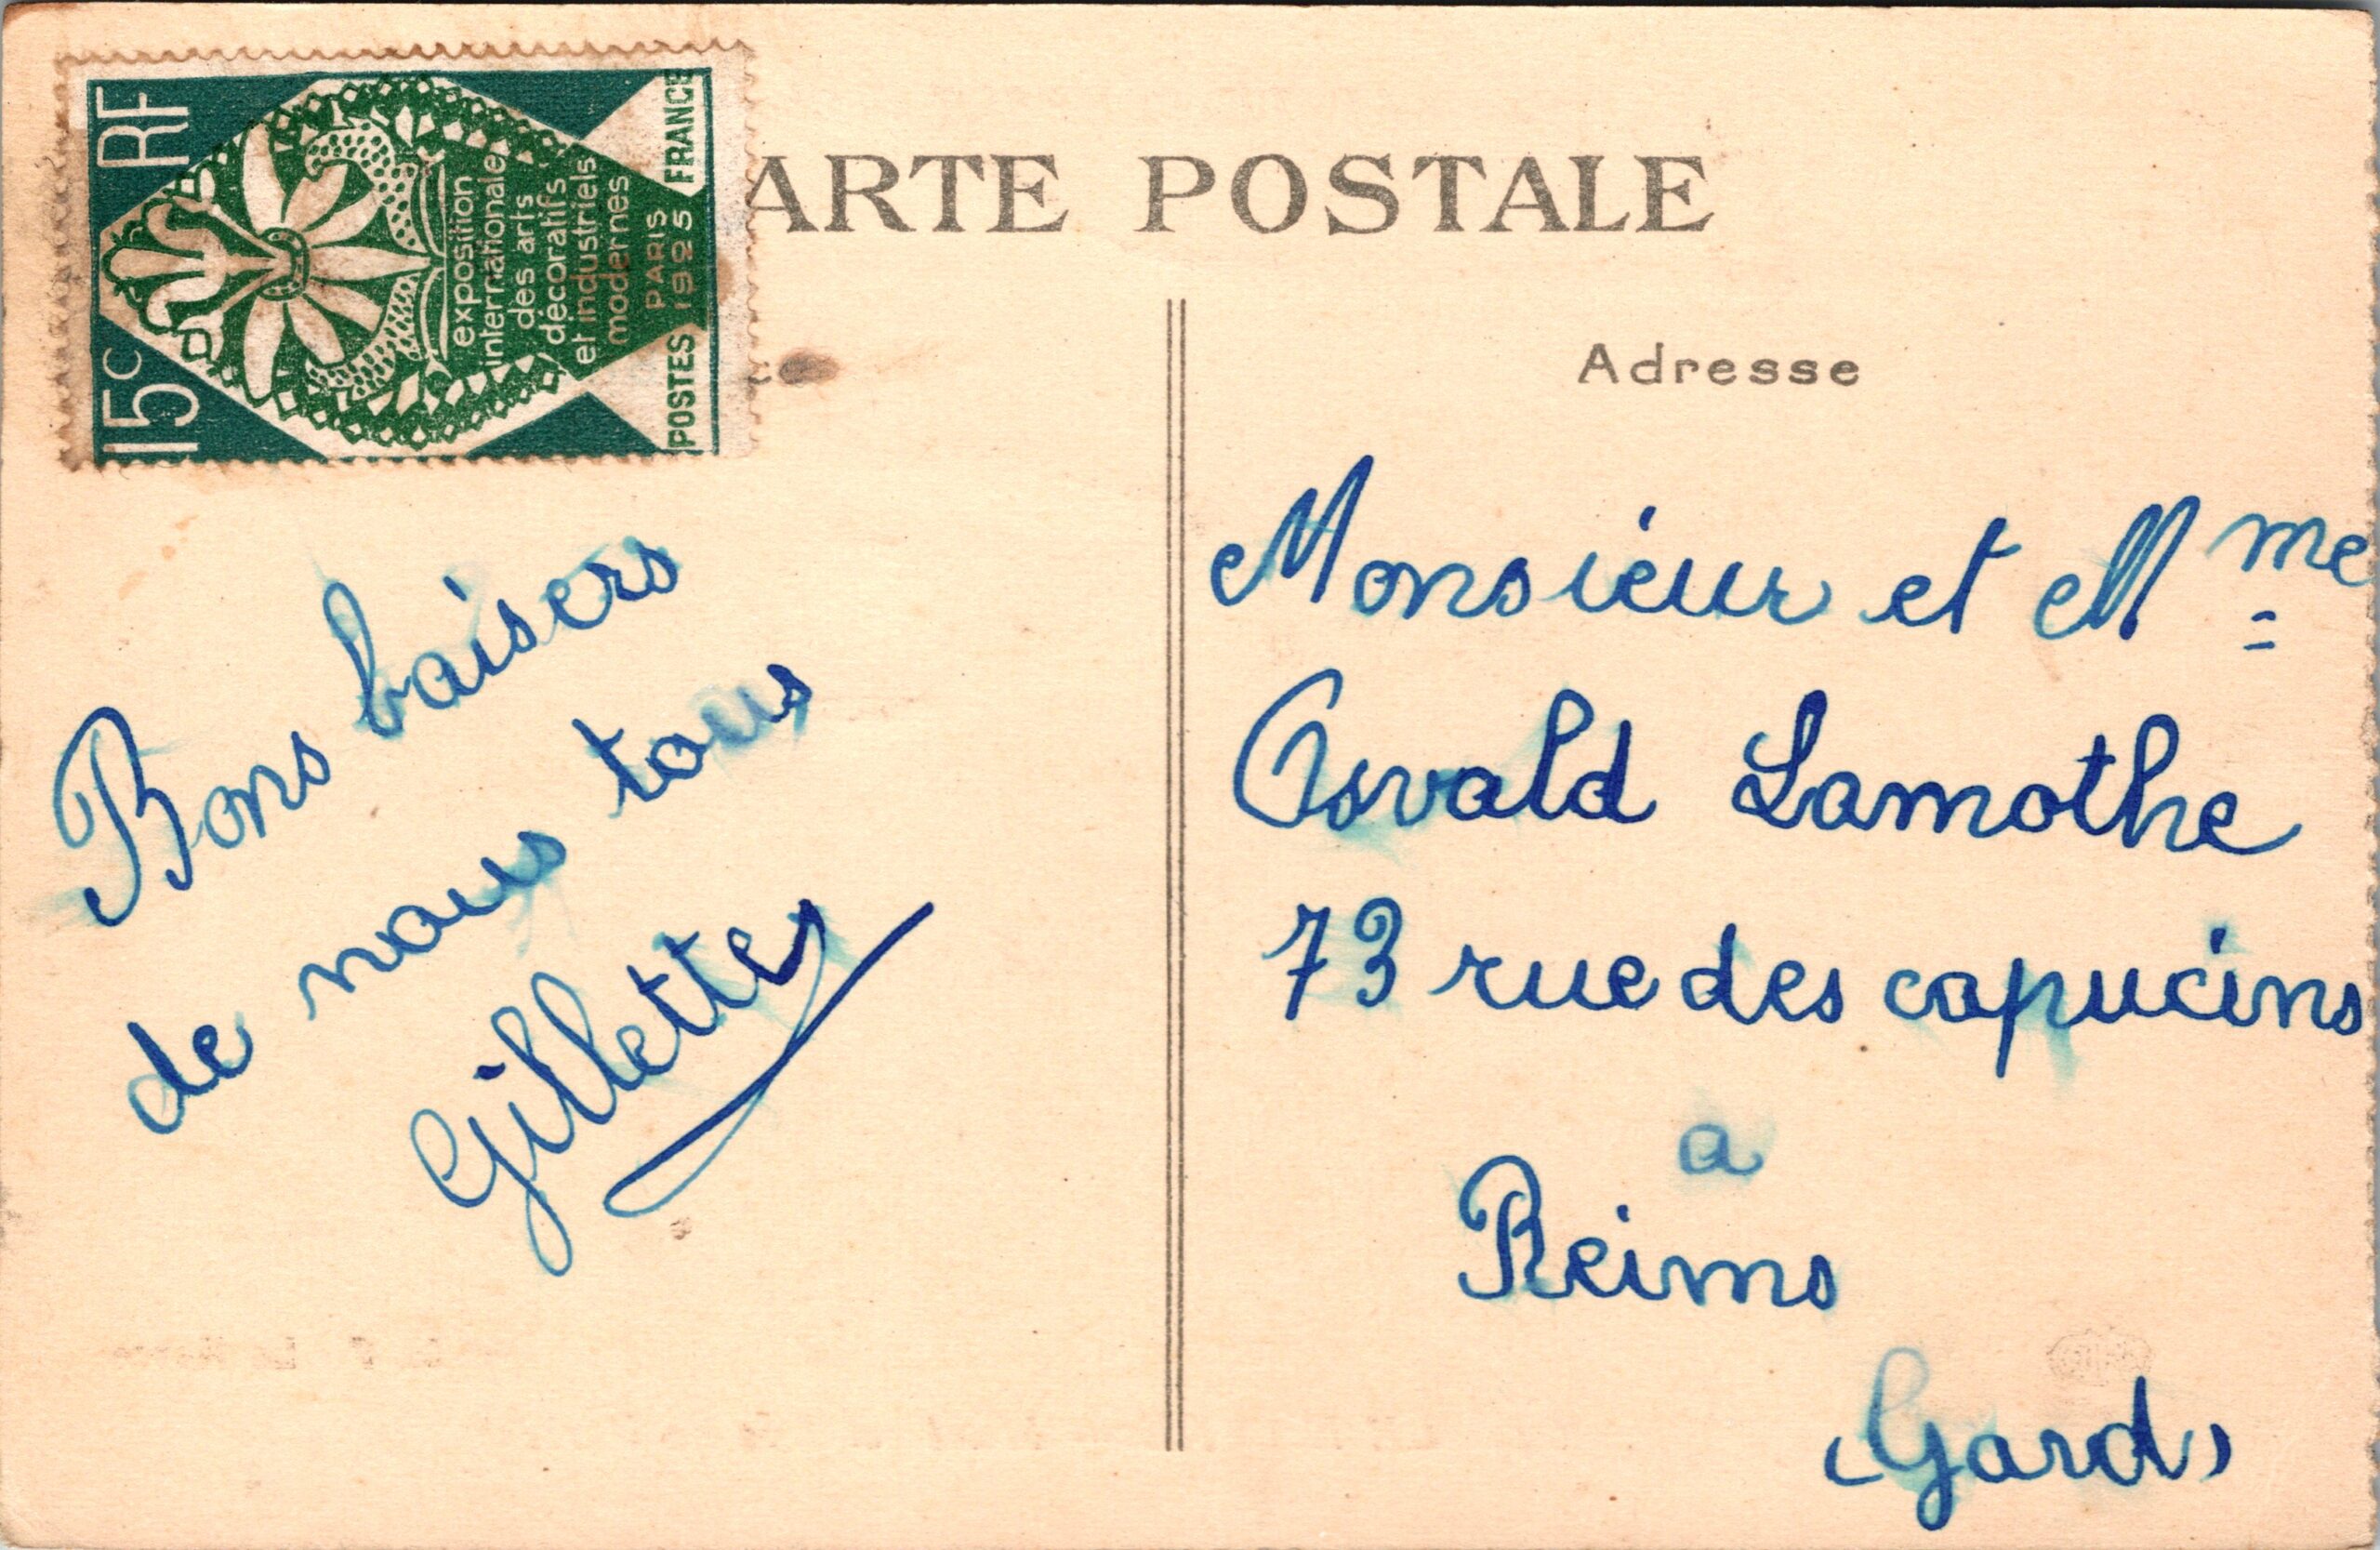 RF
15c
exposition
internationale
des arts
décoratifs
et industriels
modernes
PARIS
POSTES 1925 FRANCE
ARTE POSTALE
Bons baisers
de nous tous
Gillette
Adresse
Monsieur et Mme
Osvald Lamothe
73 rue des capucins
a
Reims
(Gard)